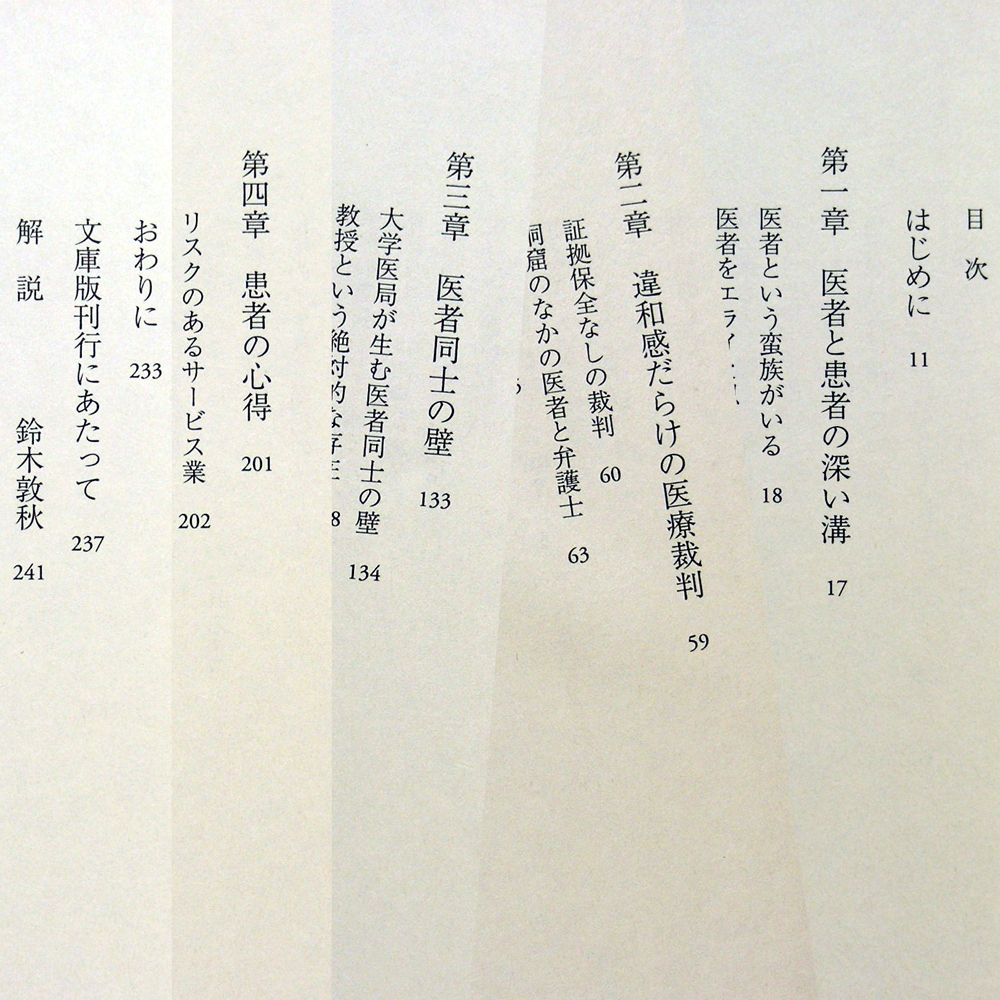 目次
はじめに 11
第一章 医者と患者の深い溝 17
医者という蛮族がいる 18
医者をエライ
第二章 違和感だらけの医療裁判 59
証拠保全なしの裁判 60
洞窟のなかの医者と弁護士 63
第三章 医者同士の壁 133
大学医局が生む医者同士の壁 134
教授という絶対的な存在 8
第四章 患者の心得 201
リスクのあるサービス業 202
おわりに 233
文庫版刊行にあたって 237
解説 鈴木敦秋 241